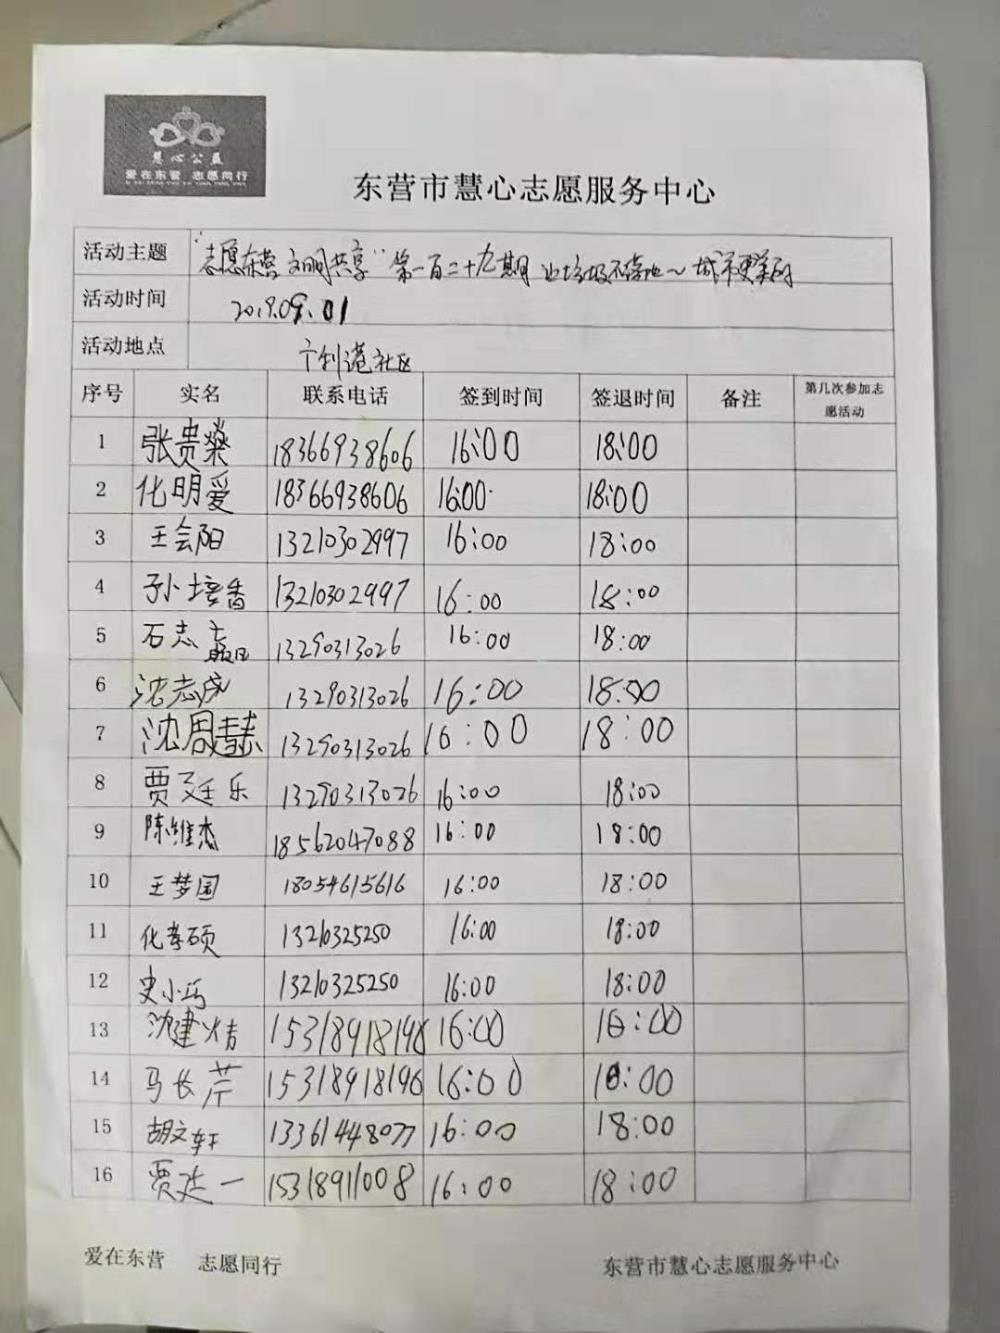 慧心公益
爱在东营 志愿同行
东营市慧心志愿服务中心
活动主题 "志愿东营 文明共享"第一百二十九期 让垃圾不落地~城市更美丽
活动时间 2019.09.01
活动地点 利港社区
序号 实名 联系电话 签到时间 签退时间 备注 第几次参加志愿活动
1 张贵燊 18366938606 16:00 18:00
2 化明爱 18366938606 16:00 18:00
3 王会阳 13210302997 16:00 18:00
4 孙培香 13210302997 16:00 18:00
5 石志 13290313026 16:00 18:00
6 沈志成 13290313026 16:00 18:00
7 沈周 13290313026 16:00 18:00
8 贾廷乐 13290313026 16:00 18:00
9 陈维杰 18562047088 16:00 18:00
10 王梦国 18054615616 16:00 18:00
11 化孝硕 13210325250 16:00 18:00
12 史小巧 13210325250 16:00 18:00
13 沈建 15318918196 16:00 18:00
14 马长芹 15318918196 16:00 18:00
15 胡文轩 13361448077 16:00 18:00
16 贾廷一 15318911008 16:00 18:00
爱在东营 志愿同行 东营市慧心志愿服务中心